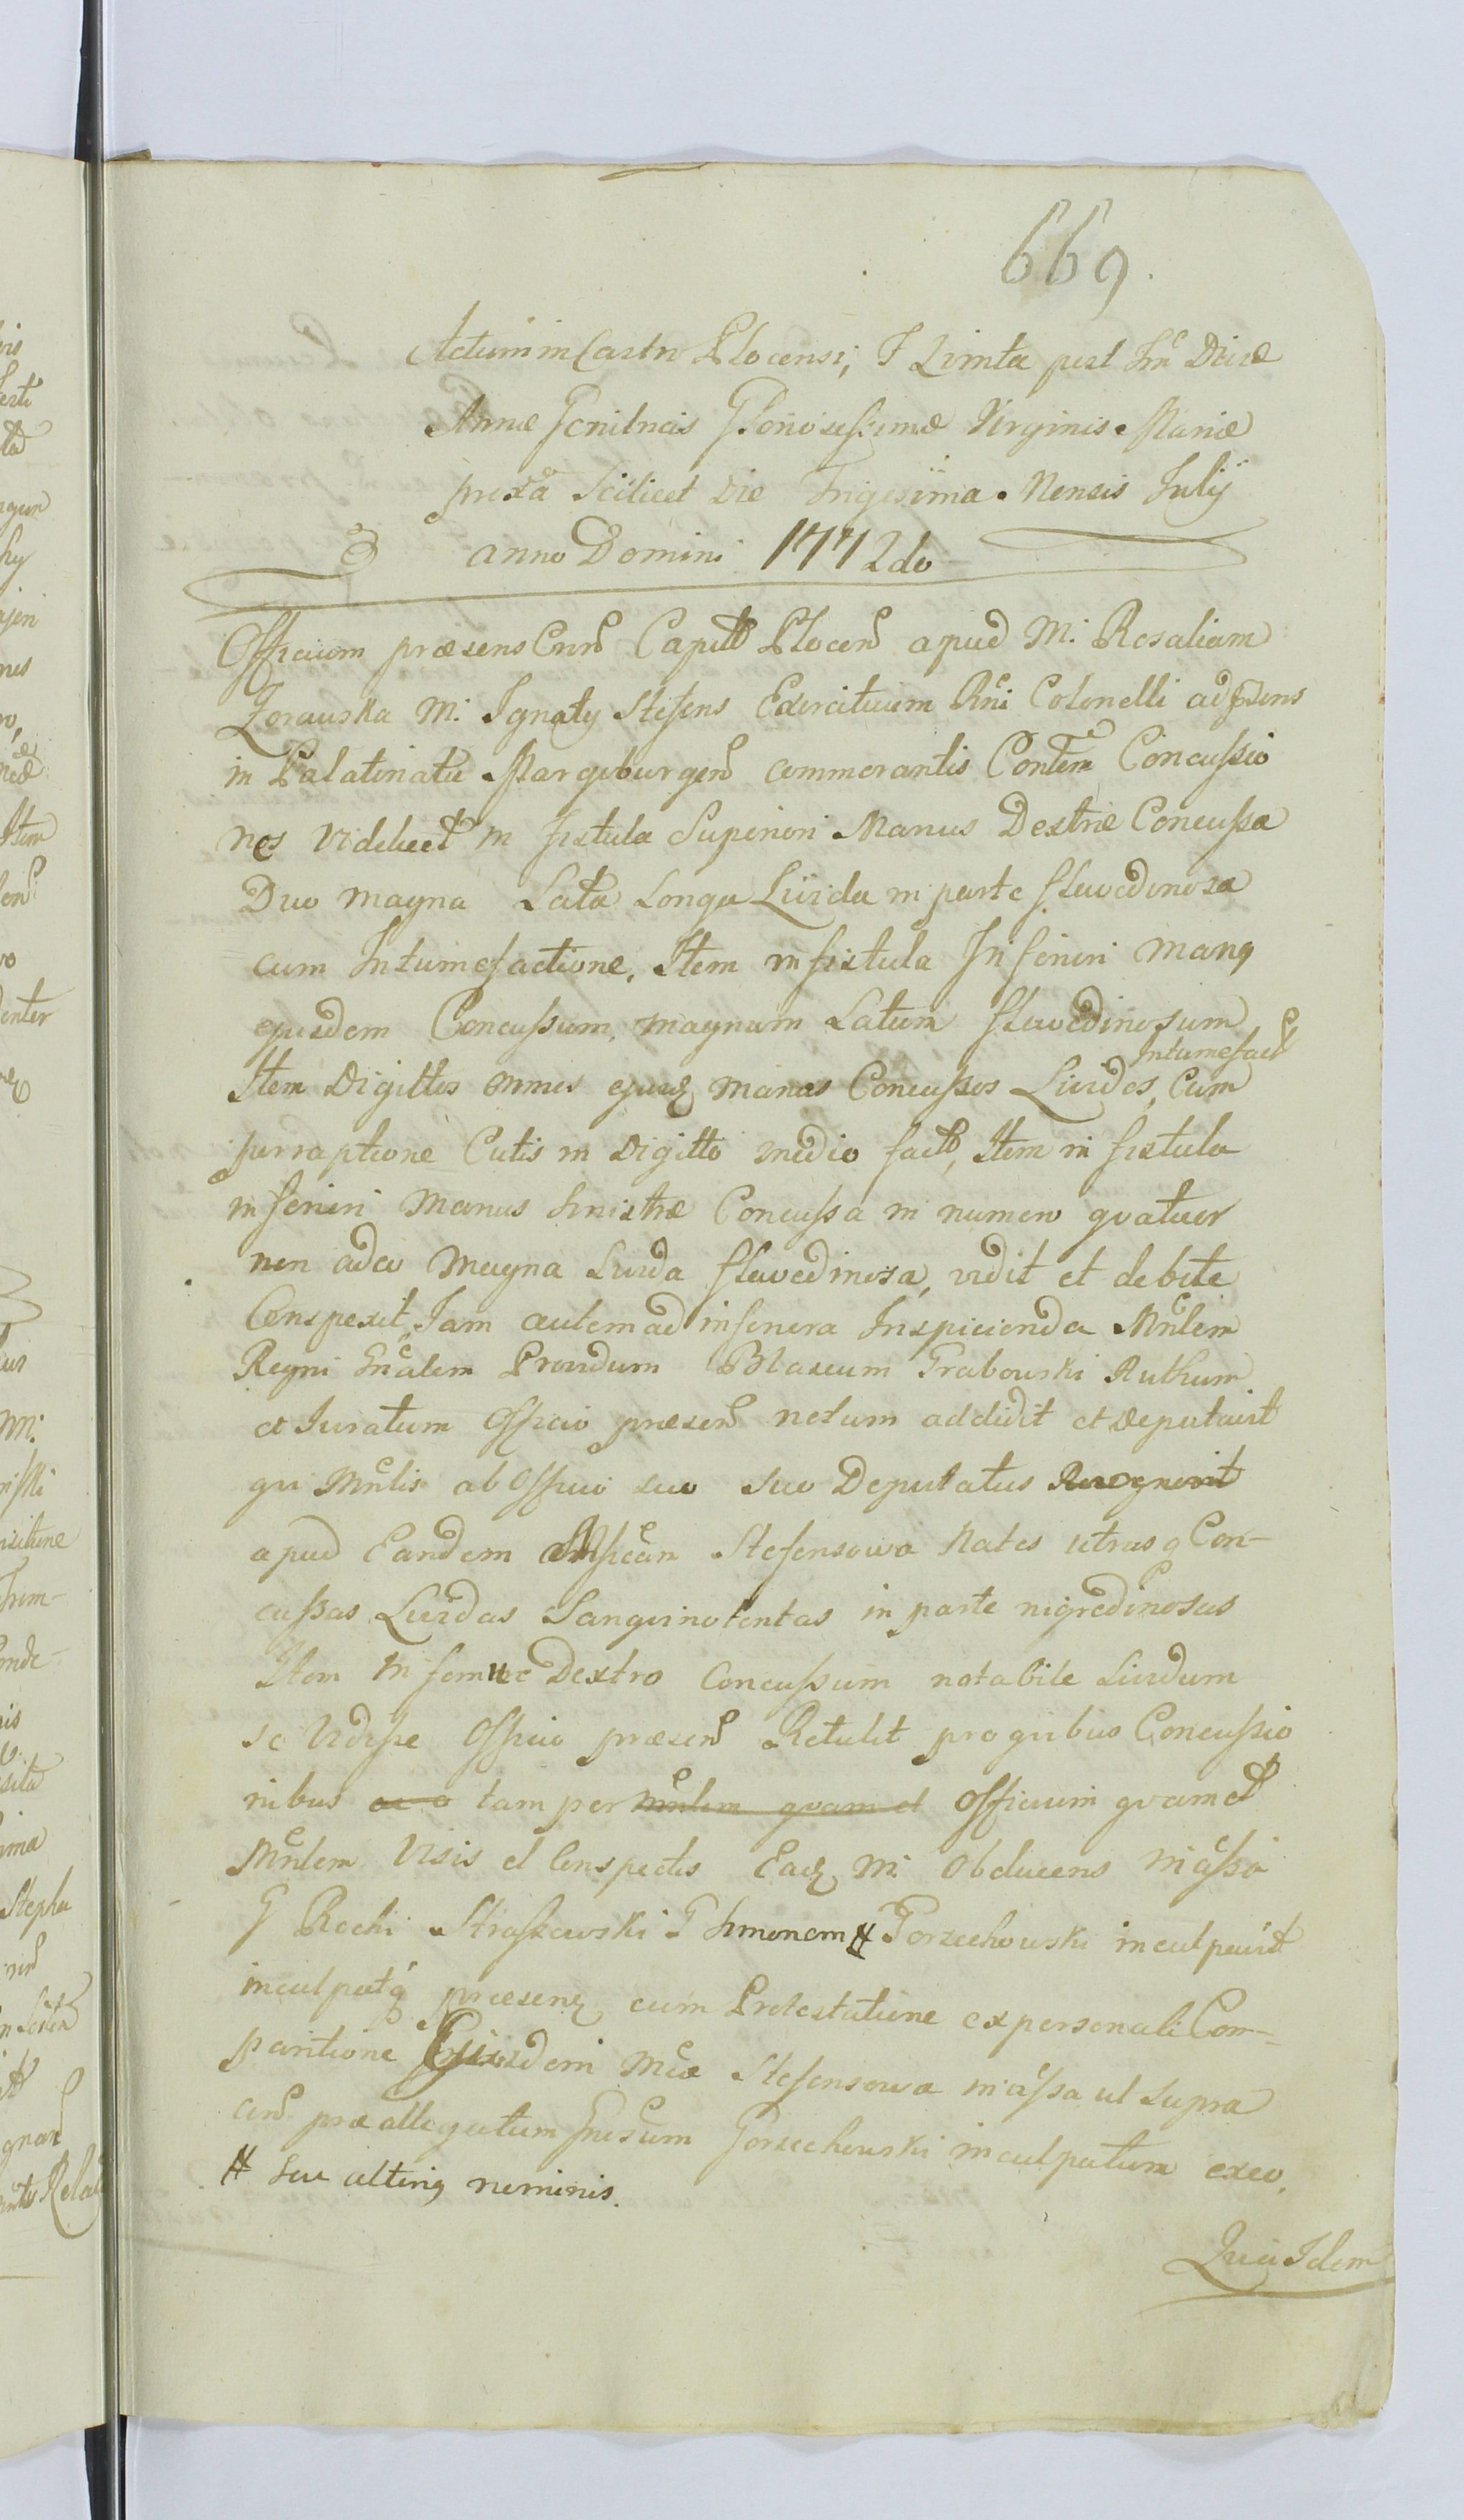 669.
Actum in Castro Plocensi, F Quinta post Fm Divæ
Annæ Genitricis Gloriosissimæ Virginis Mariæ
proxa Scilicet Die Trigesima Mensis Julij
anno Domini 1772do
Officium præsens Crnn Capitt Plocen apud M. Rosaliam
Zorawska M. Ignatij Stefens Exercituum Rni Colonelli ad præns
in Palatinatu Margiburgen commorantis Contem Concussio
nes videlicet in fistula Superiori Manus Dextræ Concussa
Duo magna Lata Longa Livida in parte flavedinosa
cum Intumefactione, Item in fistula Inferiori manq
ejusdem Concussum magnum Latum flavedinosum
Intumefact
Item Digittos omnes ejusq manus Concussos Lividos, cum
surraptione Cutis in Digitto medio factt, Item in fistula
inferiori Manus Sinistræ Concussa in numero qvatuor
non adeo Magna Livida flavedinosa, vidit et debite
Conspexit, Jam autem ad inferiora Inspicienda Mnlem
Regni Gnalem Providum Blasium Grabowski Authum
et Juratum Officio præsen notum addidit et Deputavit
qvi Mnlis ab Officio suo suo Deputatus Recognovit
apud Eandem Stefensowa Nates utrasq Con-
cussas Lividas Sangvinolentas in parte nigredinosas
Item in femure Dextro Concussum notabile Lividum
se Vidisse Officio præsen Retulit pro qvibus Concussio
nibus ac a tam per mnlem qvam et Officium qvam et
Mnlem Visis et Conspectis Eadq M. Obducens
G Rochi Straszewski G Simonem # Gorzechowski inculpavit
inculpatq præsenq cum Protestatione ex personali Com-
paritione Ejusdem Mcæ Stefensowa ut supra
præallegatum Gnrosum Gorzechowski inculpatum exeo,
# Seu alteriq nominis.
Qvia Idem